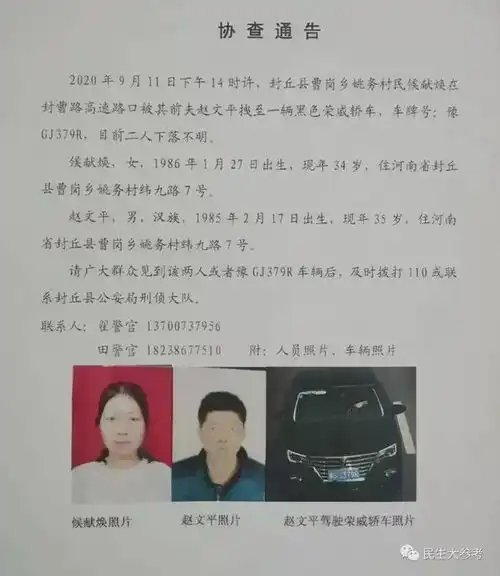 协查通告
2020年9月11日下午14时许，封丘县曹岗乡姚务村民候献焕在
封曹路高速路口被其前夫赵文平拽至一辆黑色荣威轿车，车牌号：豫
GJ379R，目前二人下落不明。
候献焕，女，1986年1月27日出生，现年34岁，住河南省封丘
县曹岗乡姚务村纬九路7号。
赵文平，男，汉族，1985年2月17日出生，现年35岁，住河南
省封丘县曹岗乡姚务村纬九路7号。
请广大群众见到该两人或者豫GJ379R车辆后，及时拨打110或联
系封丘县公安局刑侦大队。
联系人：翟警官 13700737956
田警官 18238677510 附：人员照片、车辆照片
候献焕照片 赵文平照片 赵文平驾驶荣威轿车照片
民生大参考